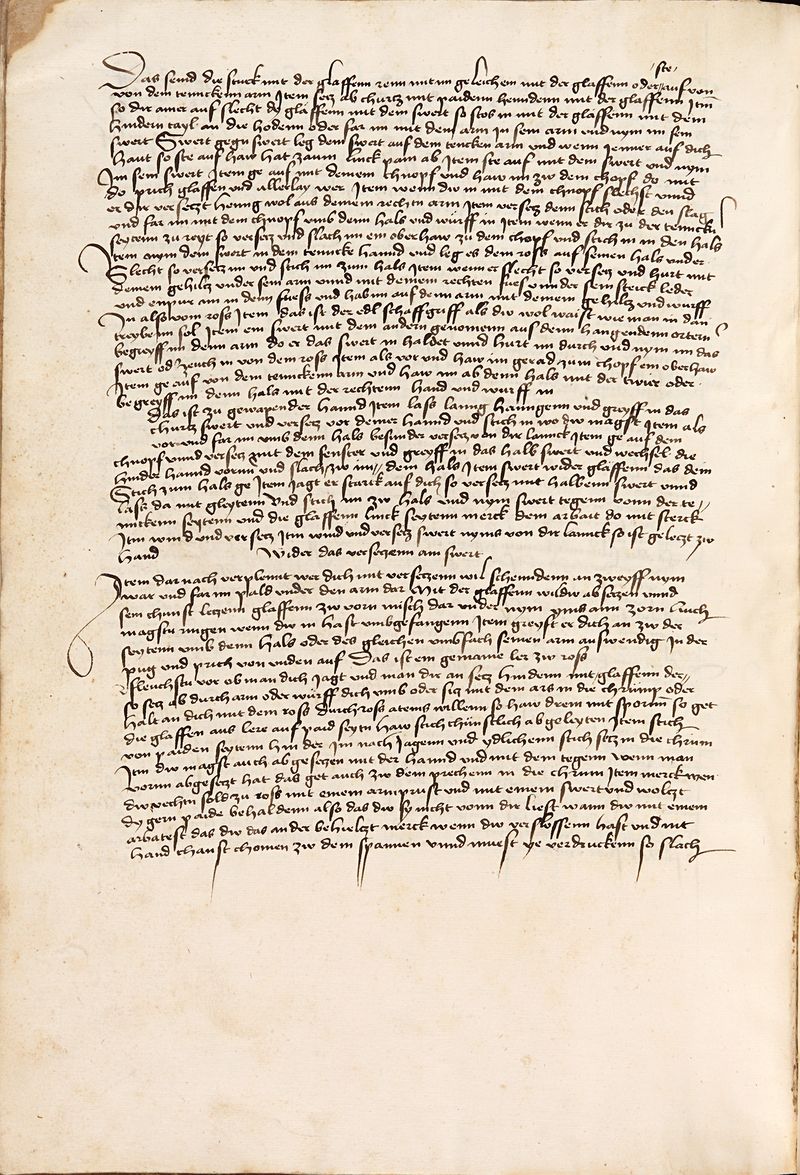 ste
Das seind die stuck mit der glaffenn renn mit im geleichem mit der glaffenn oder auf von
von dem tenncken arm Item setz ab churtz mit paidenn henndenn mit der glaffenn Itm
so dir ainer auf slecht dy glaffenn mit dem swert so stos in mit der glaffenn mit dem
hindern tayl an die hodenn oder far im mit dem arm in sein arm und nym im sein
swert Swert gegn swert leg dein swert auf dem tencken arm und wenn jenner auf dich
haut so ste auf haw hat zaum linck pain ab Item ste auf mit dem swert und nym
Im sein swert Item ge auf mit deinem chnopf und haw im zw dem chopf do mit
do prich glaffen und allerlay wer Item wenn dw in mit dem chnopf slechst unnd
er dir versetzt heng wol aus deinem rechtn arm Item versetz denn stich oder den slag
und far im mit dem chnopf umb denn hals und würff in Item wenn er dir zu der tenncken
seytenn zu reyt so versetz und slach im ein oberhaw zu dem chopf und stich in in den hals
Item nym dein swert in dein tenncke hannd und leg es dem ross auf seinen hals under
Slecht so versetz im und stich im zum hals Item wenn er slecht so versetz und hurt mit
deinem gehiltz under sein arm unnd mit deinem rechten fues under sein sterck leder
und enpur am in dem fuess und hab im auf denn arm mit deinem gehiltz und wurff
In also vom ross Item das ist der edl schaffgriff als dw wol waist wie man in dan
treybenn sol Item ein swert mit dem andern genomenn aus denn hangendenn ortern
begreyff im denn arm do er das swert in haldet unnd hurt im durch und nym im das
swert oder zeuch in von dem ross Item als vor und haw im gerad zum chopf ein oberhaw
Item ge auf von dem tenncken arm und haw im ab denn hals mit der twier oder
begreyff im denn hals mit der rechtenn hand und wurff in
Das ist zu gewapender hannd Item lass lanng hanngenn und greyff in das
churtz swert und versetz vor deiner hannd und stich in wo dw magst Item als
vor und far im umb denn hals besunder versetz von dir lannck Item ge auf dem
chnopf unnd versetz mit dem fenster und greyff in das halb swert und wechsel die
hinder hannd vorn und slach zw im dem hals Item swert wider glaffenn das dein
Stich zum hals ge Item jagt er starck auf dich so versetz mit halbem swert unnd
lass da mit gleytenn und stich im zw hals und nym swert tegenn vonn der te
nnckenn seytenn und die glaffenn linck seytenn merck dein arbait do mit sterck
Itm wind und versetz Itm wind und versetz swert nyms von dir lannck so ist geletzt zw
hand Wider das versetzenn am swert
Item darnach verplennt wer dich mit versetzenn wil schenndenn an zweyff nym
war und far im pald under den arm dar Mit der glaffenn wildw absetzen unnd
sein chunst letzenn glaffenn zw vorn misch dar under nym yms ann zorn Auch
magstu ringen wenn dw in hast umbgefangenn Item greyft er dich an zw der
seytenn umb denn hals oder des gleichen umbfach seinen arm auswendig in der
pug und prich von unden auf Das ist ein gemaine ler zw ross
Fleuchstu vor ob man dich jagt und man dir an setz hindenn mit glaffenn der
so setz ab durch arm oder würff dich umb oder sitz mit dem ars in die chrümp oder
halt an dich mit dem ross durch ross atems willenn so haw drein mit sporn so get
die glaffen aus lere auf paid seytn haw stich chünstlich ab geleyten Item stich
von paiden seytenn hinder im nach jagenn und ydlichenn stich setz in die chrum
Itm dw magst auch ab gesetzen mit der hannd und mit dem tegenn wenn man
vornn abgesetzt hat das get auch zw dem prechenn in die chrum Item merck wen
dw vechtn sold zu ross mit einem armprust und mit einem swert und woltzt
dy gern paide behaldenn also das dw sy nicht vonn dir liest wann dw mit einem
arbatest das dw das ander behieltzt merck wenn dw verslossenn hast und nit
hand chanst chomen zw dem spannen unnd muest ye verdruckenn so slach